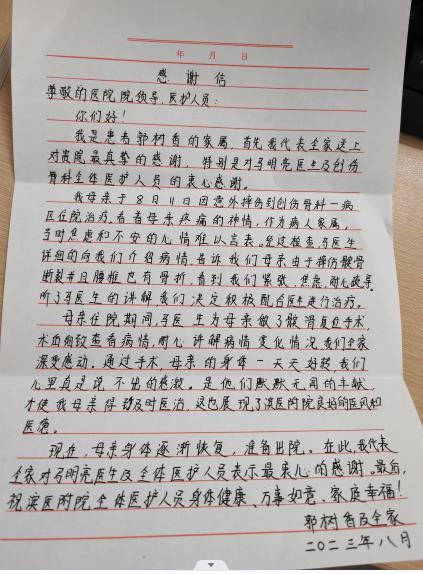 年 月 日
感谢信
尊敬的医院院领导、医护人员:
你们好!
我是患者郭树香的家属,首先我代表全家送上
对贵院最真挚的感谢,特别是对马明亮医生及创伤
骨科全体医护人员的衷心感谢。
我母亲于8月11日因意外摔伤到创伤骨科一病
区住院治疗,看着母亲疼痛的神情,作为病人家属,
当时焦虑和不安的心情难以言表。经过检查,马医生
详细的向我们介绍病情,告诉我们母亲由于摔伤髋骨
断裂并且腰椎也有骨折,看到我们紧张、焦虑,耐心疏导,
听了马医生的讲解我们决定积极配合医生进行治疗。
母亲住院期间,马医生为母亲做了髋骨复位手术,
术后细致查看病情,耐心讲解病情变化情况,我们全家
深受感动。通过手术,母亲的身体一天天好转,我们
心里真是说不出的感激。是他们默默无闻的奉献,
才使我母亲得到及时医治,这也展现了滨医附院良好的医风和
医德。
现在,母亲身体逐渐恢复,准备出院。在此,我代表
全家对马明亮医生及全体医护人员表示最衷心的感谢。最后,
祝滨医附院全体医护人员身体健康、万事如意、家庭幸福!
郭树香及全家
二〇二三年八月